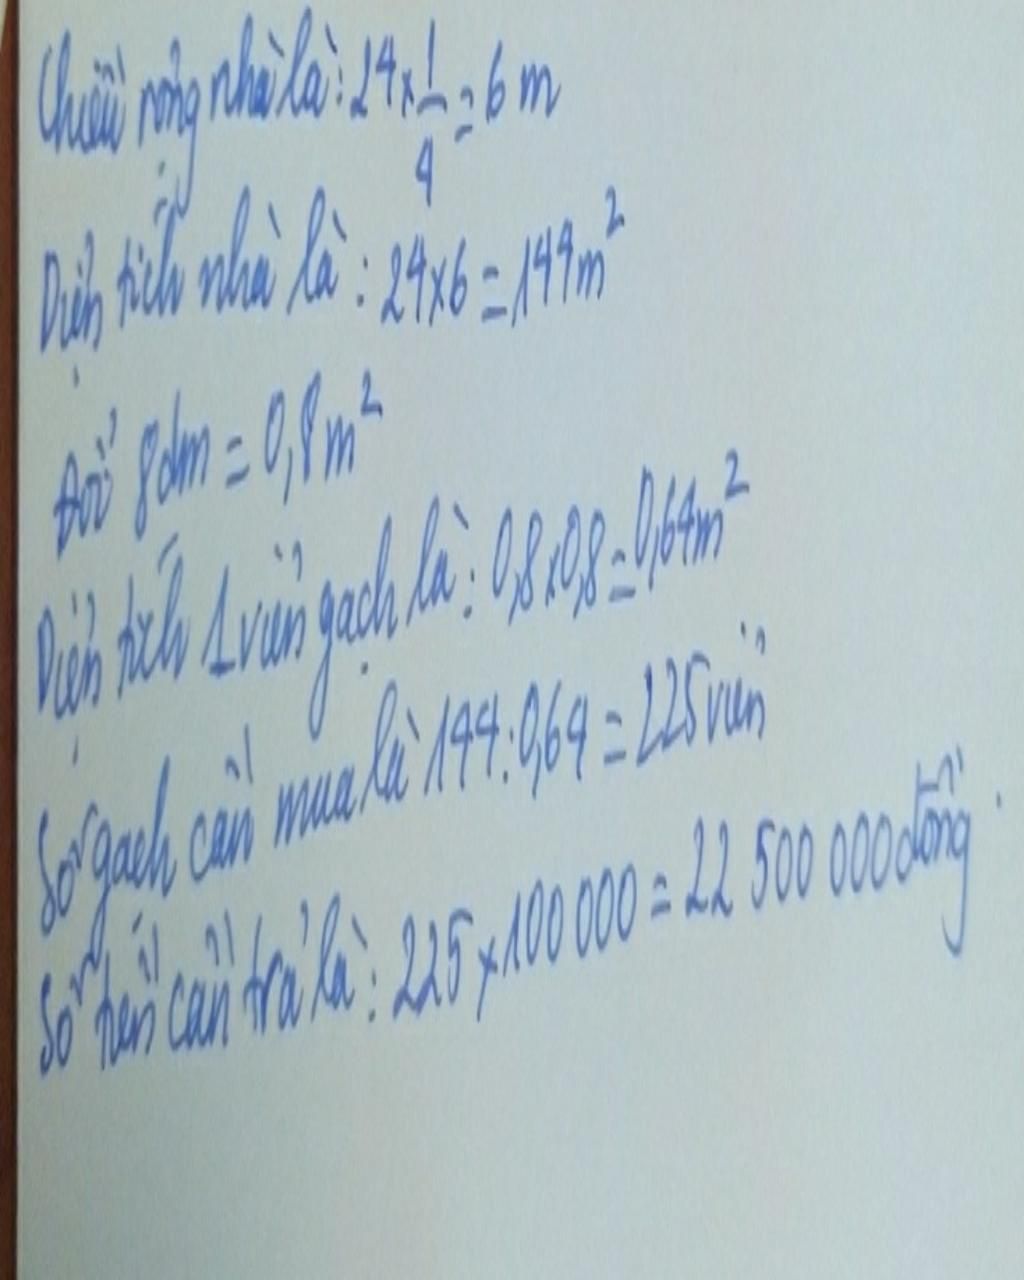 Chiều rộng nhà là: 24 x 1/4 = 6 m
Diện tích nhà là: 24 x 6 = 144 m²
Đổi 8dm = 0,8 m²
Diện tích 1 viên gạch là: 0,8 x 0,8 = 0,64 m²
Số gạch cần mua là 144 : 0,64 = 225 viên
Số tiền cần trả là: 225 x 100 000 = 22 500 000 đồng.